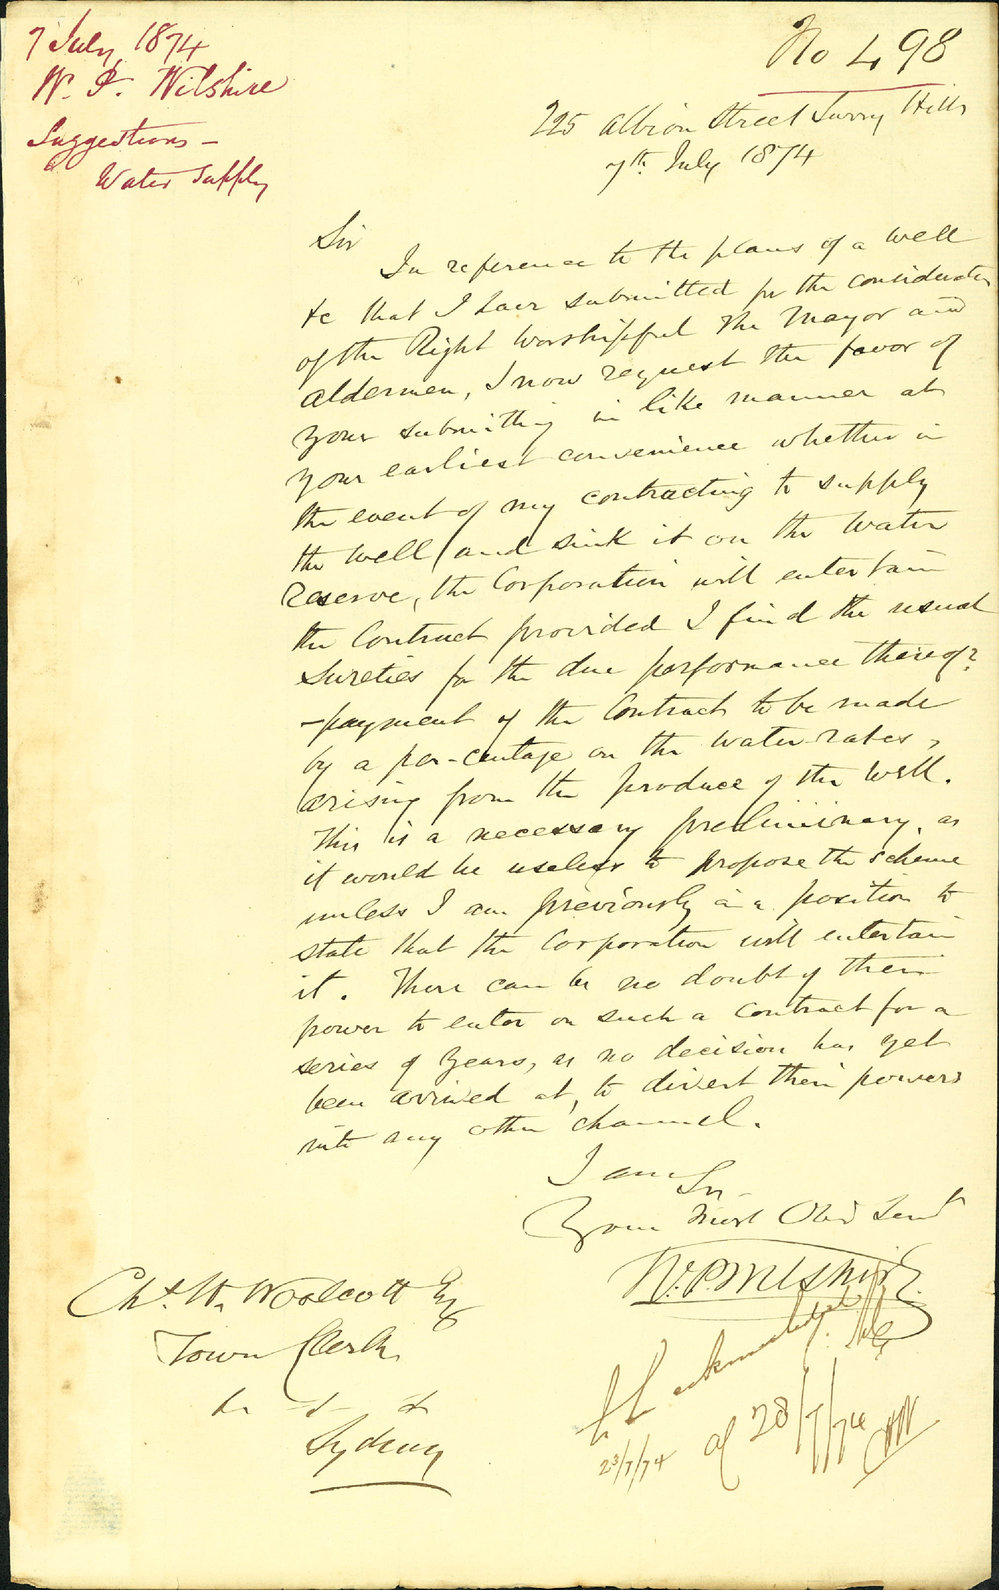 7 July 1874
W. P. Wilshire
Suggestions –
Water Supply
No 498
225 Albion Street Surry Hills
7th July 1874
Sir
In reference to the plans of a well
&c that I have submitted for the consideration
of the Right Worshipful the Mayor and
Aldermen, I now request the favor of
your submitting in like manner at
your earliest convenience whether in
the event of my contracting to supply
the well and sink it on the Water
Reserve, the Corporation will entertain
the Contract provided I find the usual
Sureties for the due performance thereof?
–payment of the Contract to be made
by a per-centage on the water-rates,
arising from the produce of the Well.
This is a necessary preliminary, as
it would be useless to propose the scheme
unless I am previously in a position to
state that the Corporation will entertain
it. There can be no doubt of their
power to enter on such a Contract for a
series of years, as no decision has yet
been arrived at, to divert their powers
into any other channel.
I am Sir
Your Most Obed Servt
W. P. Wilshire
Chs. H. Woolcott Esq
Town Clerk
&c &c
Sydney
acknowledged
23/7/74
28/7/74